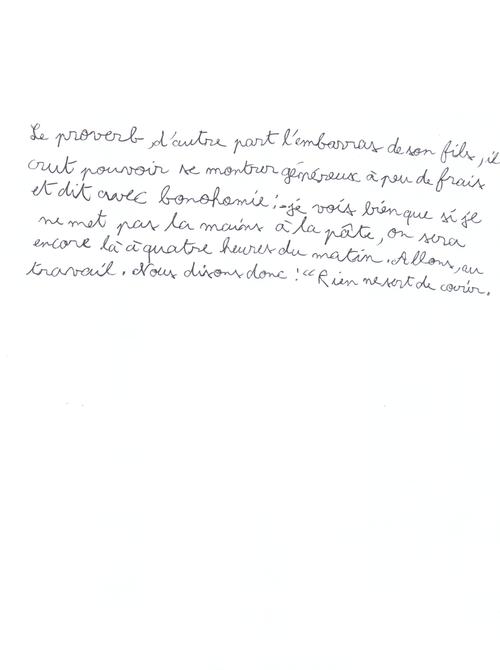 Le proverb, d'autre part l'embarras de son fils, il
crut pouvoir se montrer généreux à peu de frais
et dit avec bonohomie :-je vois bien que si je
ne met pas la mains à la pâte, on sera
encore là à quatre heures du matin. Allons, au
travail. Nous disons donc : "Rien ne sert de courir.